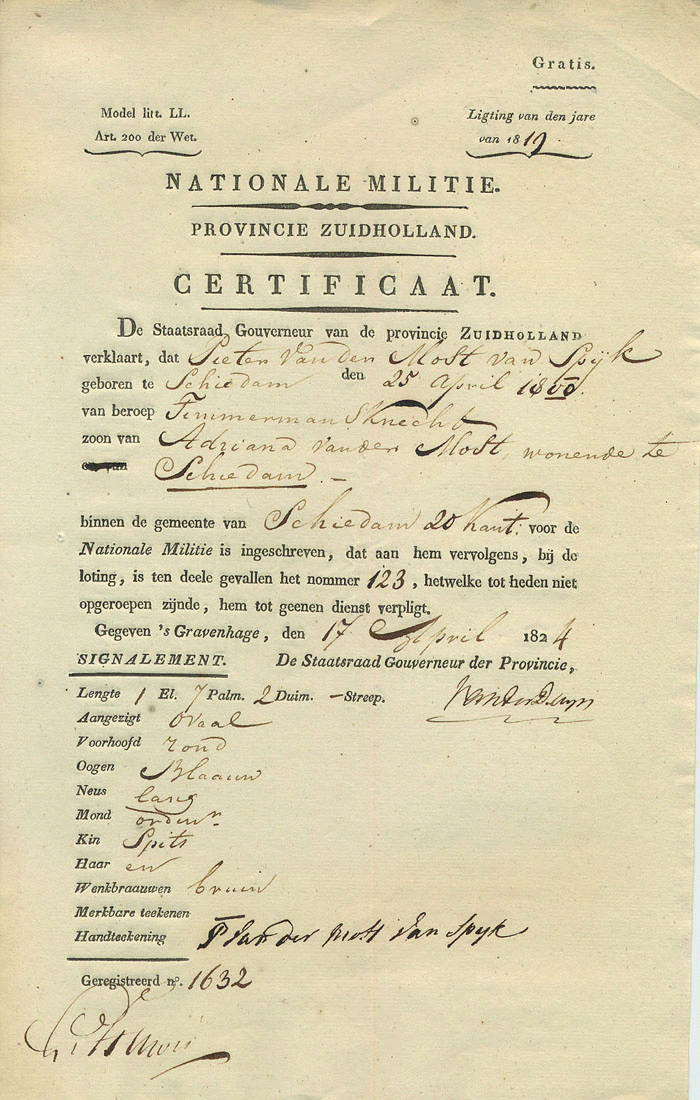 Gratis.
Model litt. LL.
Art. 200 der Wet.
Ligting van den jare
van 1819.
NATIONALE MILITIE.
PROVINCIE ZUIDHOLLAND.
CERTIFICAAT.
De Staatsraad Gouverneur van de provincie ZUIDHOLLAND
verklaart, dat Pieter van den Most van Spyk
geboren te Schiedam den 25 April 1800.
van beroep Timmermans Knecht
zoon van Adriana van der Most, wonende te
Schiedam. -
binnen de gemeente van Schiedam 20 Kant: voor de
Nationale Militie is ingeschreven, dat aan hem vervolgens, bij de
loting, is ten deele gevallen het nommer 123, hetwelke tot heden niet
opgeroepen zijnde, hem tot geenen dienst verpligt.
Gegeven 's Gravenhage, den 17 April 1824
SIGNALEMENT. De Staatsraad Gouverneur der Provincie,
Lengte 1 El. 7 Palm. 2 Duim. - Streep. Van der Duyn
Aangezigt Ovaal
Voorhoofd rond
Oogen Blaauw
Neus lang
Mond ordin.
Kin Spits
Haar en
Wenkbraauwen bruin
Merkbare teekenen
Handteekening P Van der Most Van Spyk
Geregistreerd nº. 1632